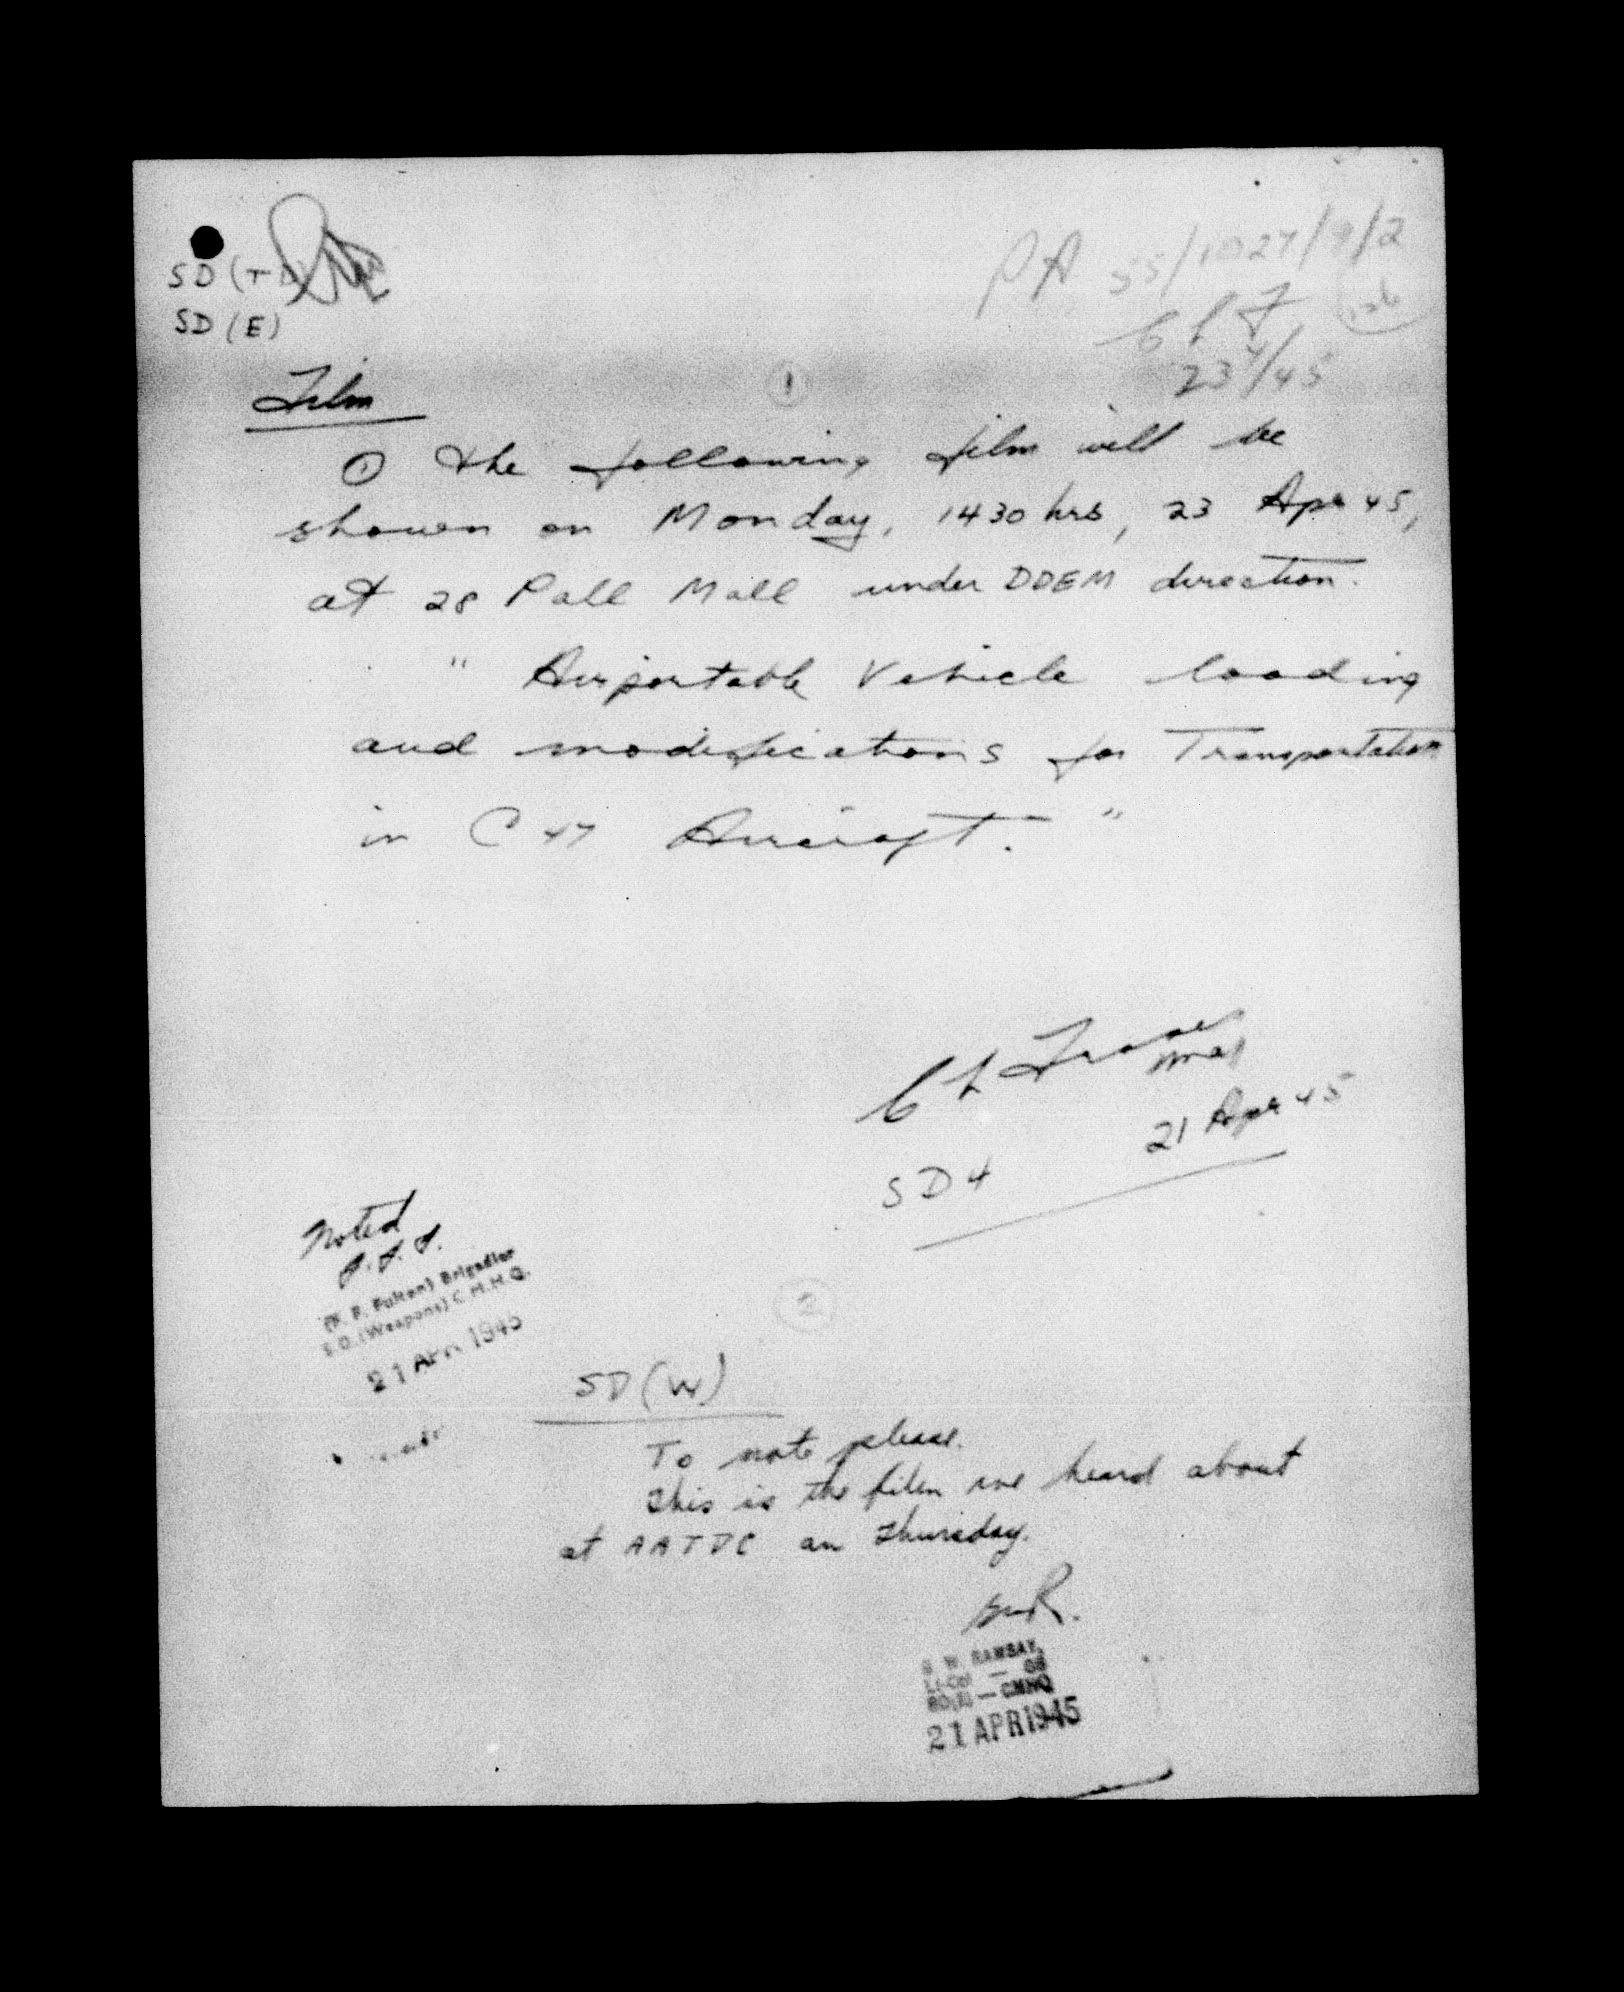 SD (TD)
SD (E)
PA 55/1027/9/2
CLF
23 4/45
1
Film
① The following film will be
shown on Monday, 1430 hrs, 23 Apr 45,
at 28 Pall Mall under DDEM direction.
" Airportable Vehicle loading
and modifications for Transportation
in C 47 Aircraft. "
C L Fraser
Maj
SD 4
21 Apr 45
Noted
Brigadier
S.D. (Weapons) C.M.H.Q.
21 APR 1945
2
SD (W)
To note please.
This is the film we heard about
at AATDC on Thursday.
R.
W. RAMSAY,
Lt-Col — GS
— CMHQ
21 APR 1945